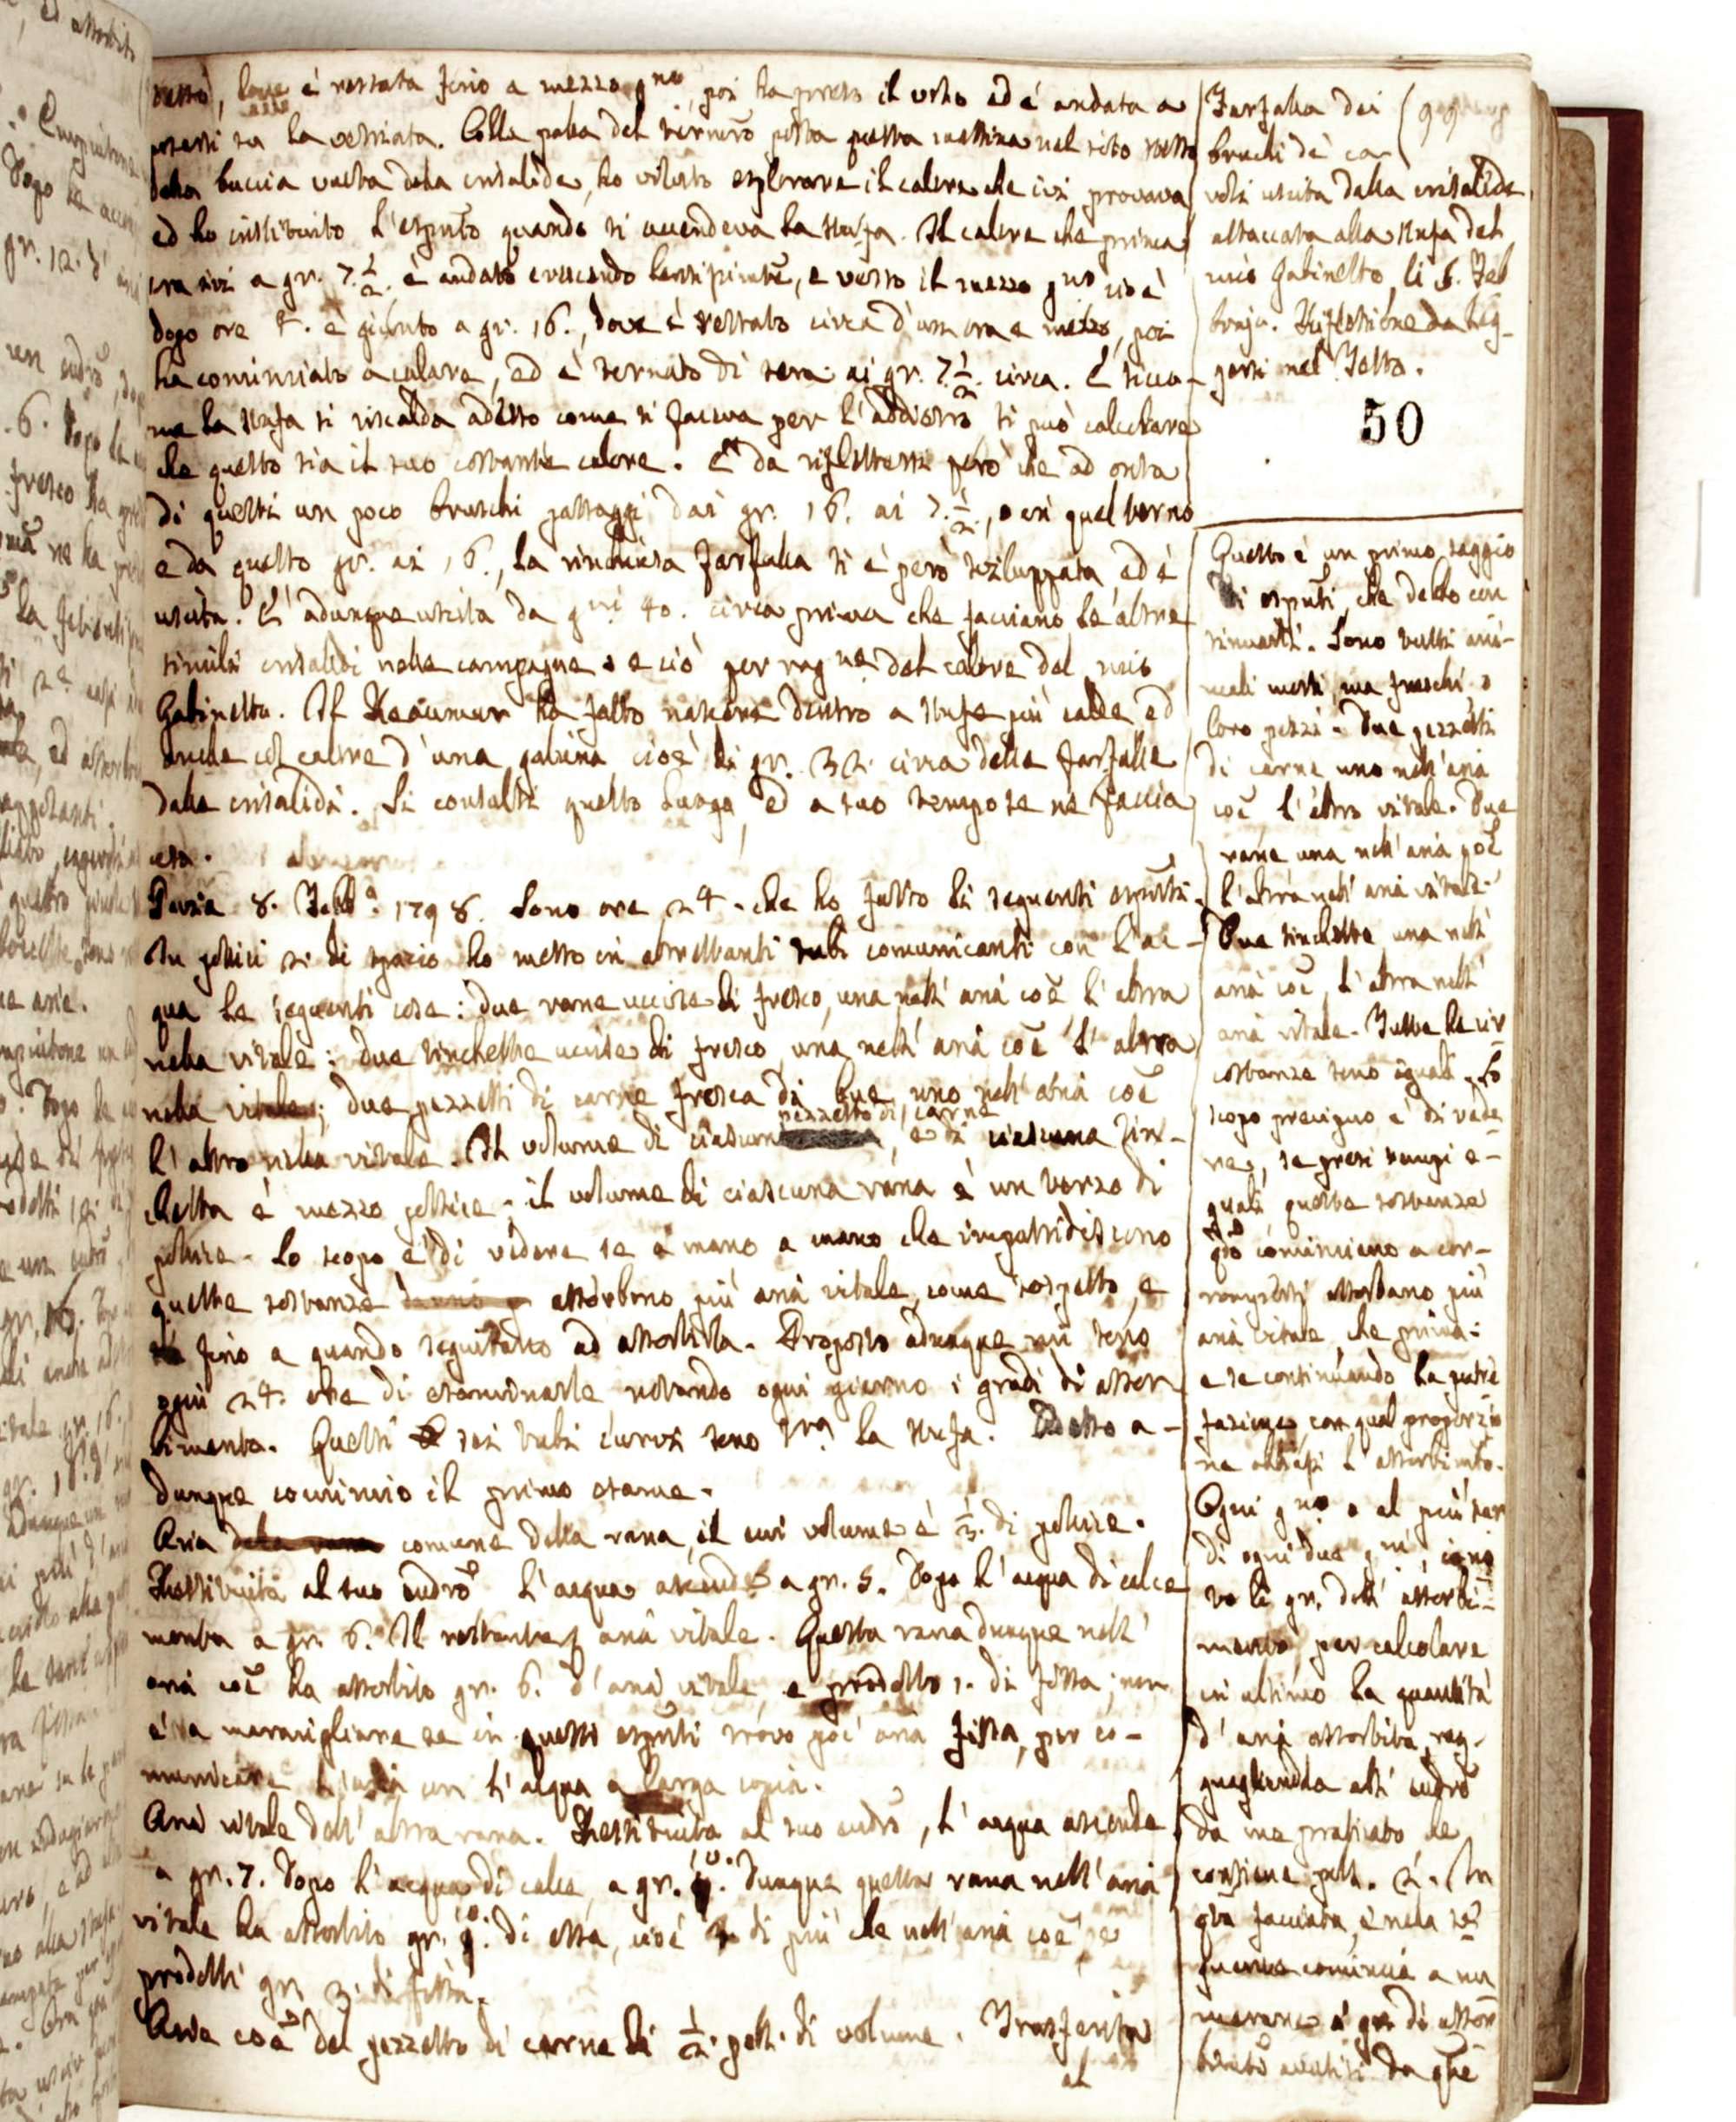 è restata fino a mezzo gno, poi ha preso il volo ed è andata a
la vetriata. Colla palla del termero posta questa mattina nel sito stesso
della buccia vuota della crisalide, ho voluto esplorare il calore che ivi provava
ed ho instituito l'esputo quando si accendeva la stufa. Il calore che prima
era ivi a gr. 7. 1/2. è andato crescendo, e verso il mezzo gno cioè
dopo ore 4. è giunto a gr. 16., dove è restato circa d'un ora e mezzo, poi
ha cominciato a calare, ed è tornato di sera ai gr. 7. 1/2. circa. E sicco-
me la stufa si riscalda adesso come si faceva per l'addietro si può calcolare
che questo sia il suo costante calore. E' da riflettersi però che ad onta
di questi un poco bruschi passaggi dai gr. 16. ai 7. 1/2.,
e da questo gr. ai 16., la rinchiusa farfalla si è però sviluppata, ed è
uscita. E' adunque uscita da gni 40. circa prima che facciano le altre
simili crisalidi nelle campagne, e ciò per ragne del calore del mio
Gabinetto. Il Reaumur ha fatto nascere dentro a stufe più calde, ed
anche col calore d'una gallina cioè di gr. 32. circa delle farfalle
dalle crisalidi. Si consulti questo luogo, ed a suo tempo se ne faccia
uso.
Pavia 8. Febbo. 1798. Sono ore 24. che ho fatto li seguenti esputi.
In pollici di spazio ho messo in altrettanti tubi comunicanti con l'ac-
qua le seguenti cose: due rane uccise di fresco, una nell'aria coe l'altra
nella vitale: due tinchette uccise di fresco una nell'aria coe l'altra
nella vitale; due pezzetti di carne fresca di bue, uno nell'aria coe
l'altro nella vitale. Il volume di ciascun pezzetto di carne, e di ciascuna tin-
chetta è mezzo pollice. il volume di ciascuna rana è un terzo di
pollice. Lo scopo è di vedere se a mano a mano che imputridiscono
queste sostanze assorbono più aria vitale, come sospetto, e
fino a quando seguitano ad assorbirla. Proposto adunque mi sono
ogni 24. ore di esaminarle notando ogni giorno i gradi di assor
bimento. Questi sei tubi curvi sono la stufa. Adesso a-
dunque comincio il primo esame.
Aria della rana comune della rana, il cui volume è 1/3. di pollice.
Restituita al suo cudro l'acqua ascende a gr. 5. Dopo l'acqua di calce
monta a gr. 6. Il restante aria vitale. Questa rana dunque nell'
aria coe ha assorbito gr. 6. d'aria vitale, e prodotto 1. di fissa; non
è da maravigliare se in questi esputi trovo poc'aria fissa, per co-
municare l'aria con l'acqua a larga copia.
Aria vitale dell'altra rana. Restituita al suo cudro, l'acqua ascende
a gr. 7. Dopo l'acqua di calce, a gr. 10. Dunque questa rana nell'aria
vitale ha assorbito gr. di essa, cioè di più che nell'aria coe, e
prodotti gr. 3. di fissa.
Aria coe del pezzetto di carne di 1/2. poll. di volume. Trasferita
al
Farfalla dei (99
bruchi de' ca-
voli uscita dalla crisalide
attaccata alla stufa del
mio Gabinetto li 6. Feb
brajo. Riflessione da leg-
gersi nel Testo.
50
Questo è un primo saggio
di esputi, che debbo con
tinuarsi. Sono tutti ani-
mali morti, ma freschi o
loro pezzi. Due pezzetti
di carne uno nell'aria
coe l'altro vitale. Due
rane una nell'aria coe
l'altra nell'aria vitale.
Due tinchette una nell'
aria coe, l'altra nell'
aria vitale. Tutte le cir
costanze sono eguali. Lo
scopo precipuo è di vede
re, se presi tempi e-
guali queste sostanze
qdo cominciano a cor-
rompersi assorbano più
aria vitale, che prima:
e se continuando la putre
fazione, con qual proporzio
ne l'assorbimto.
Ogni gno o al più tar
di ogni due gni,
vo li gr. dell'assorbi-
mento, per calcolare
in ultimo la quantità
d'aria assorbita, rag-
guagliandola all' cudro
da me praticato che
contiene poll. 2. In
qta facciata, e nella
comincia a nu
merare i gr. di assor
bimto da qte